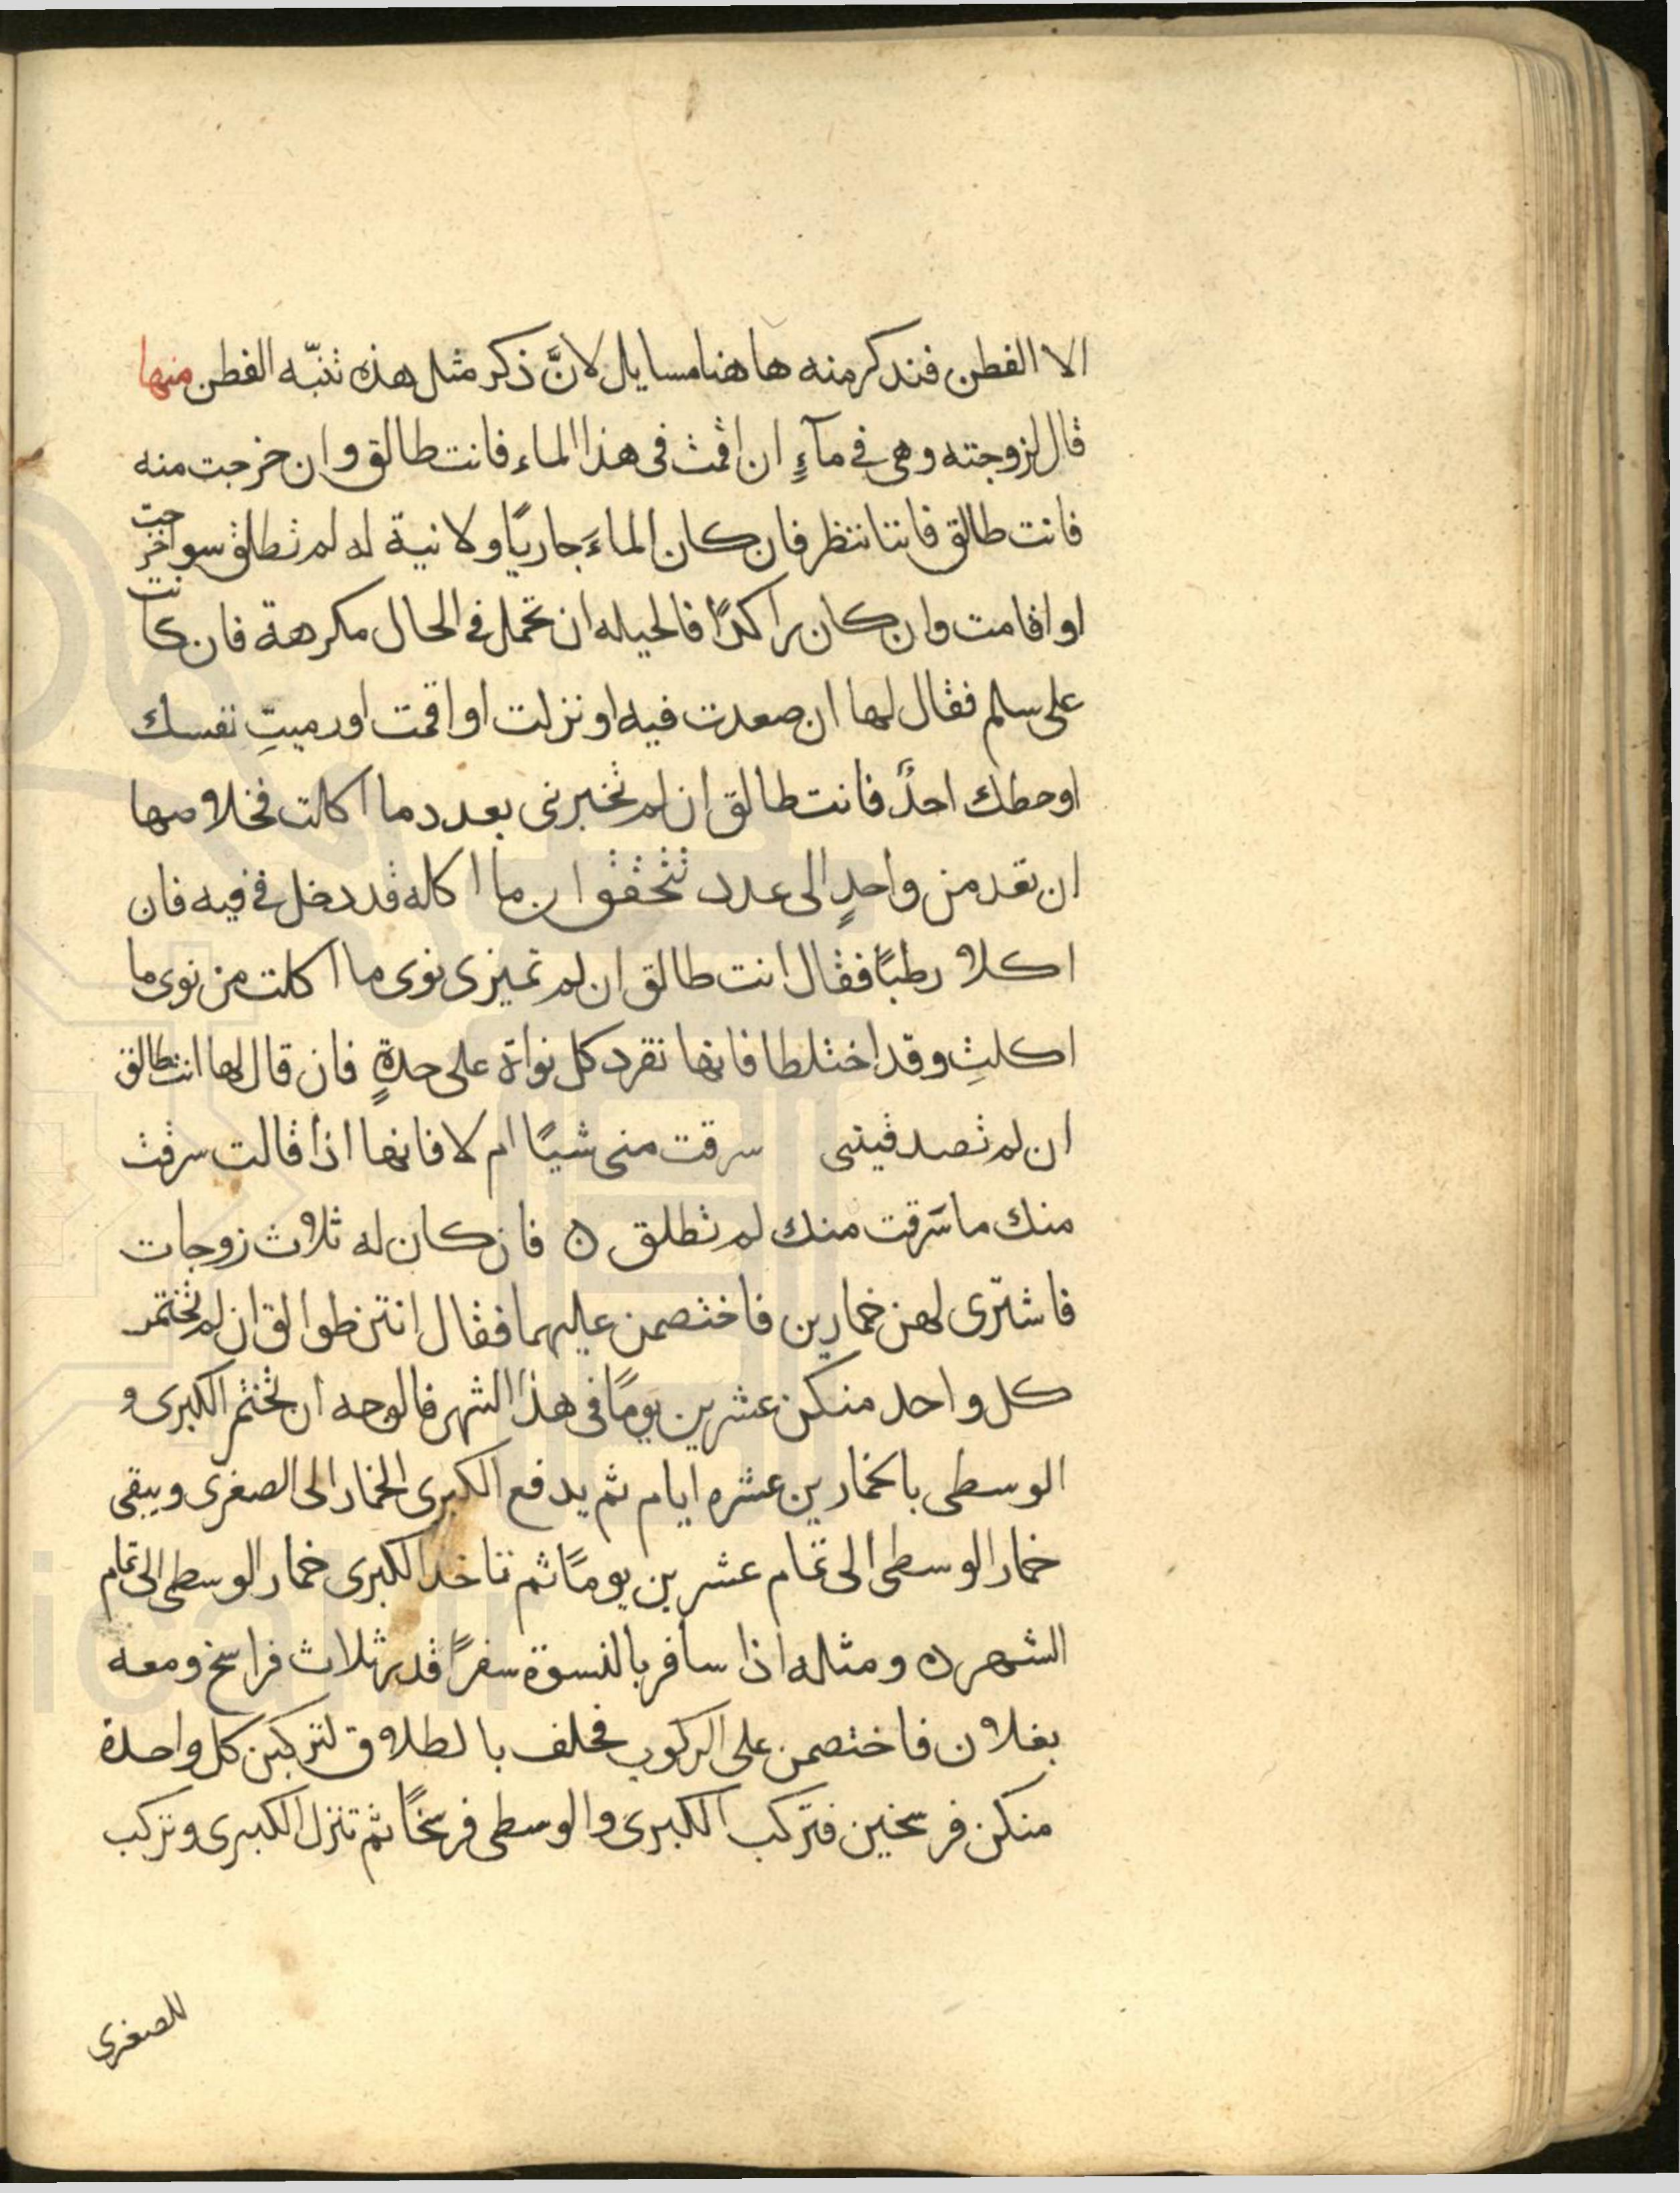 الا الفطن فنذكر منه هاهنا مسايل لانَّ ذكر مثل هذه تنبّه الفطن منها
قال لزوجته وهى في مآءٍ ان اقمت فى هذا الماء فانت طالق وان خرجت منه
فانت طالق فانتا ننظر فان كان الماءَ جاريًا ولا نية له لم تطلق سوا خرجت
او اقامت وان كان راكدًا فالحيله ان تحمل فى الحال مكرهة فان كانت
على سلم فقال لها ان صعدت فيه او نزلت او اقمت او رميتِ نفسك
او حطك احدٌ فانت طالق ان لم تخبرنى بعدد ما اكلت فخلاصها
ان تعد من واحدٍ الى عدد تتحقق ان ما اكله قد دخل في فيه فان
اكلا رطبًا فقال انت طالق ان لم تميزى نوى ما اكلت من نوى ما
اكلتِ وقد اختلطا فانها تفرد كل نواة على حدةٍ فان قال لها انت طالق
ان لم تصدقينى سرقت منى شيًا ام لا فانها اذا قالت سرقت
منك ما سَرقت منك لم تطلق ٥ فان كان له ثلاث زوجات
فاشترى لهن خمارين فاختصمن عليهما فقال انتن طوالق ان لم تختمر
كل واحد منكن عشرين يومًا فى هذا الشهر فالوجه ان تختمر الكبرى و
الوسطى بالخمارين عشره ايام ثم يدفع الكبرى الخمار الى الصغرى ويبقى
خمار الوسطى الى تمام عشرين يومًا ثم تاخذ الكبرى خمار الوسطى الى تمام
الشهر ٥ ومثله اذا سافر بالنسوة سفرًا قدر ثلاث فراسخ ومعه
بغلان فاختصمن على الركوب فحلف بالطلاق لتركبن كل واحدة
منكن فرسخين فتركب الكبرى والوسطى فرسخًا ثم تنزل الكبرى وتركب
للصغرى